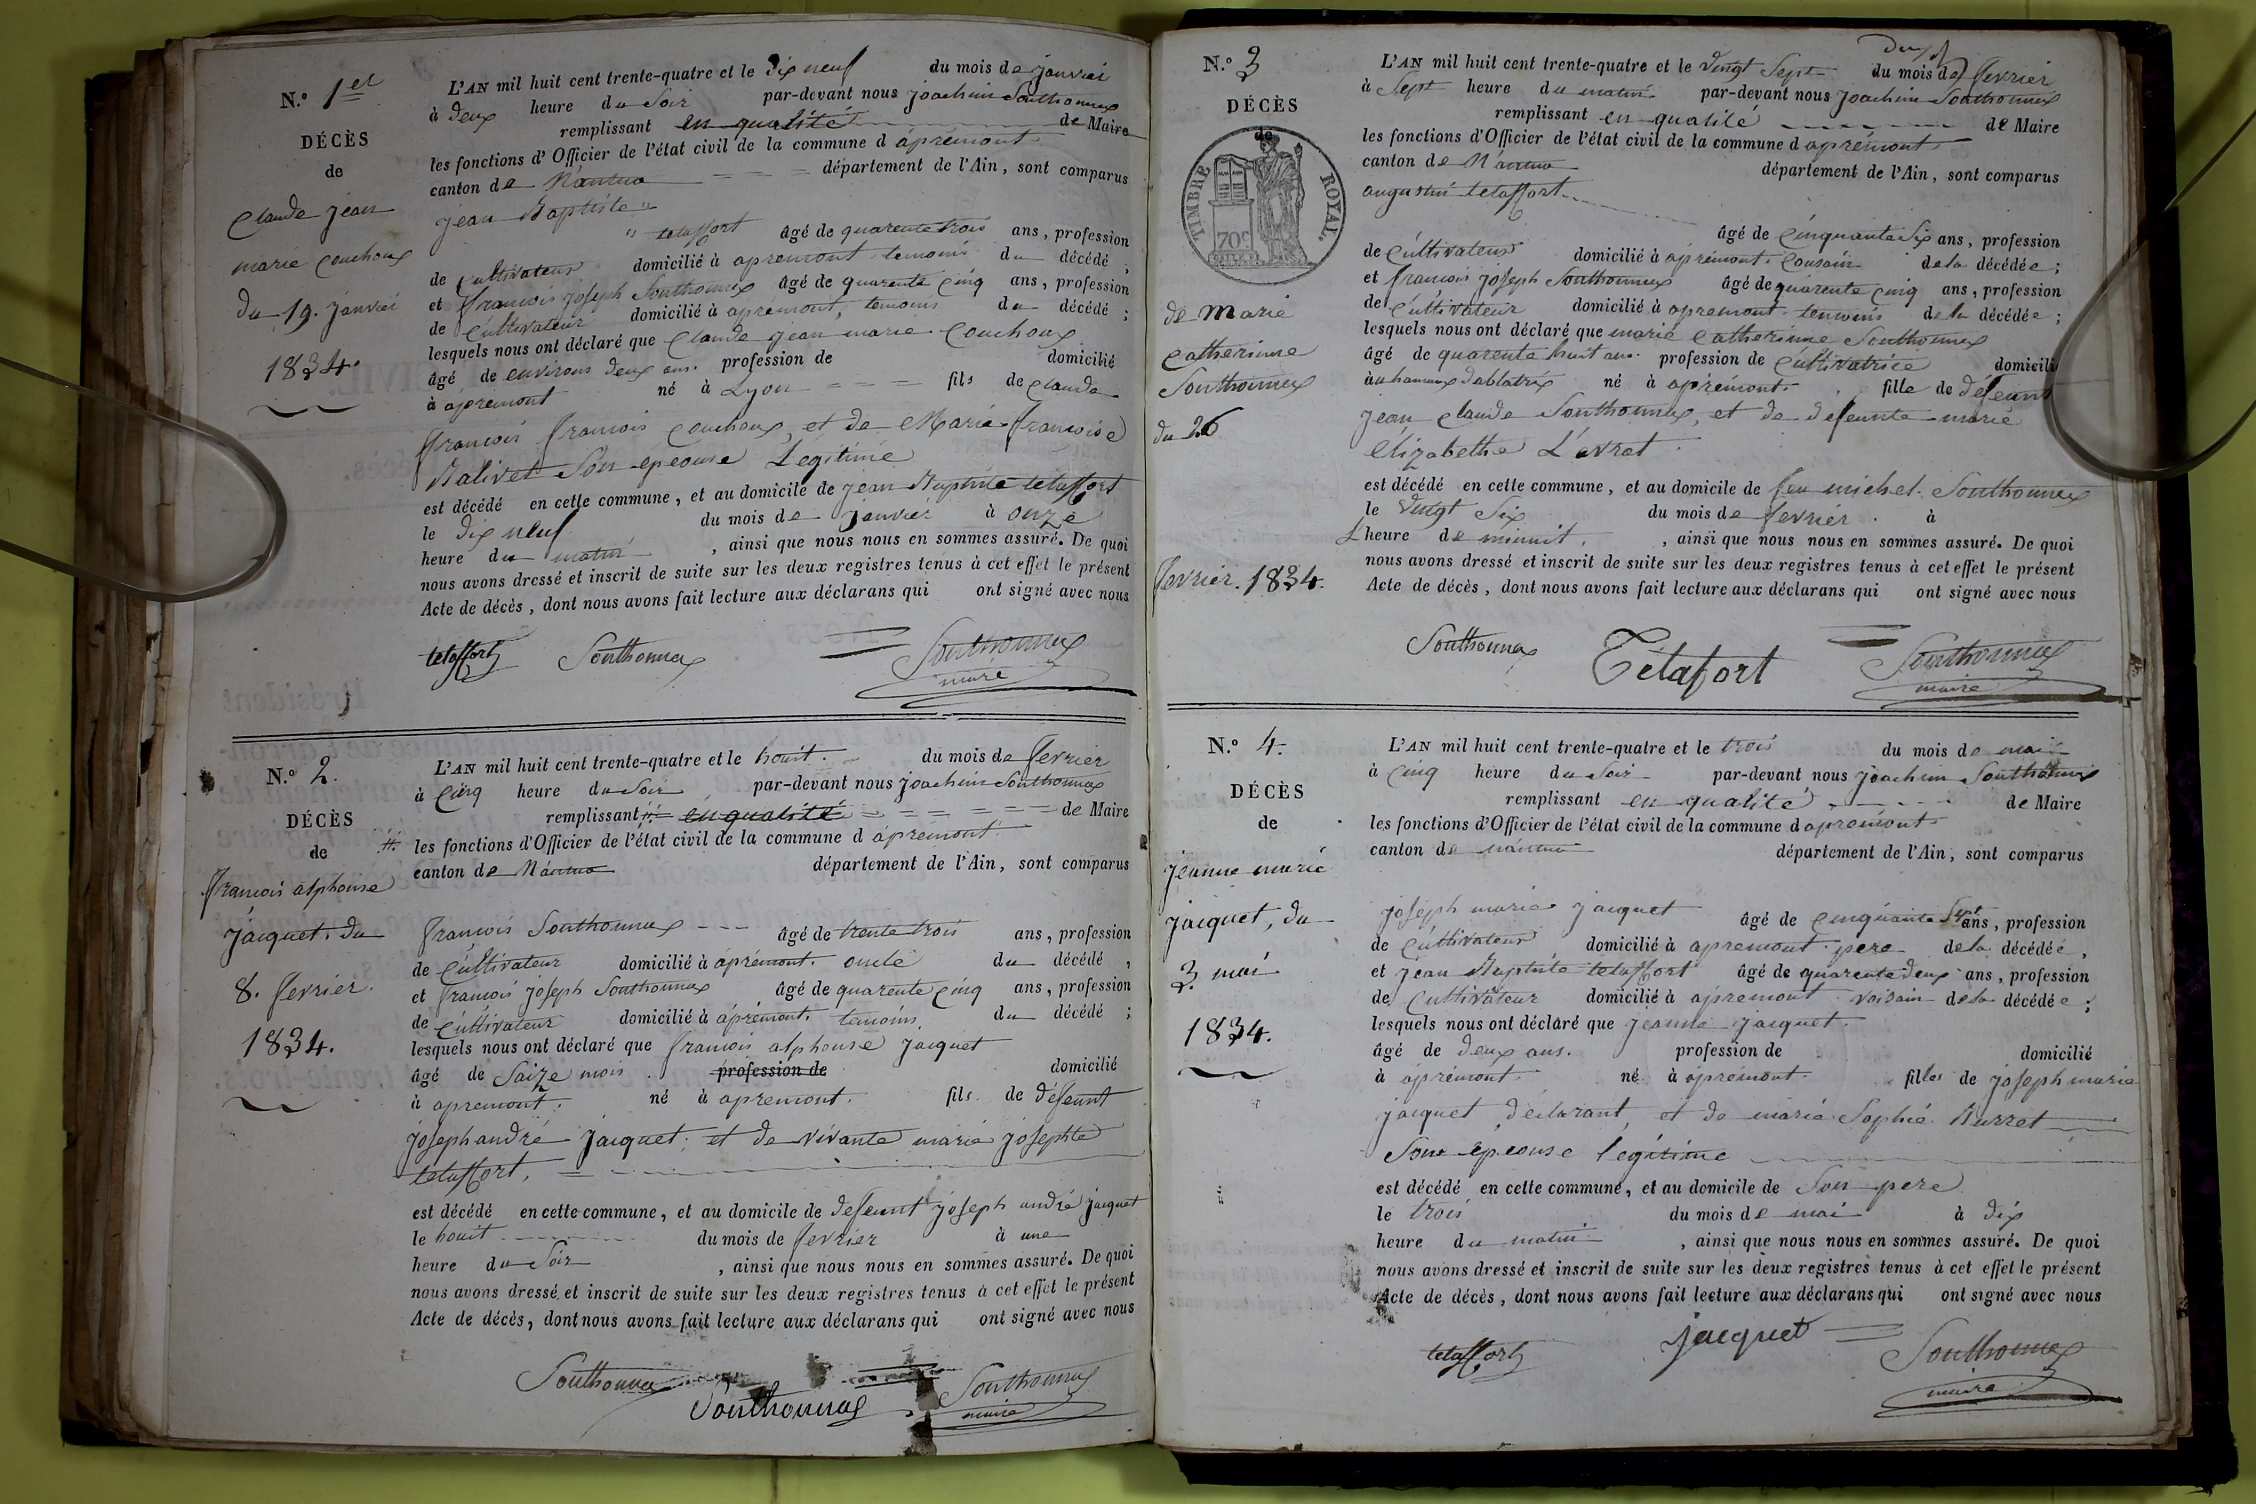 N.º 1er
DÉCÈS
de
claude jean
marie couchoux
du 19. janvier
1834.
L'AN mil huit cent trente-quatre et le dix neuf du mois de janvier
à deux heure du soir par-devant nous joachim Southonnax
remplissant en qualité de Maire
les fonctions d'Officier de l'état civil de la commune d apremont
canton de Nantua département de l'Ain, sont comparus
jean Baptiste
tetaffort âgé de quarente trois ans, profession
de cultivateur domicilié à apremont temoins du décédé ;
et françois joseph Southonnax âgé de quarente cinq ans, profession
de cultivateur domicilié à apremont, temoins du décédé ;
lesquels nous ont déclaré que claude jean marie couchoux
âgé de environs deux ans. profession de domicilié
à apremont né à Lyon fils de claude
françois françois couchoux, et de Marie françoise
Balivet son epeouse Legitime
est décédé en cette commune, et au domicile de jean Baptiste tetaffort
le dix neuf du mois de janvier à onze
heure du matin , ainsi que nous nous en sommes assuré. De quoi
nous avons dressé et inscrit de suite sur les deux registres tenus à cet effet le présent
Acte de décès, dont nous avons fait lecture aux déclarans qui ont signé avec nous
tetaffort Southonnax Southonnax
maire
N.º 2.
DÉCÈS
de
françois alphonse
jacquet. du
8. fevrier.
1834.
L'AN mil huit cent trente-quatre et le houit. du mois de fevrier
à cinq heure du soir par-devant nous joachim Southonnax
remplissant en qualité de Maire
les fonctions d'Officier de l'état civil de la commune d apremont.
canton de Nantua département de l'Ain, sont comparus
françois Southonnax âgé de trente trois ans, profession
de cultivateur domicilié à apremont. oncle du décédé ,
et françois joseph Southonnax âgé de quarente cinq ans, profession
de cultivateur domicilié à apremont. temoins. du décédé ;
lesquels nous ont déclaré que françois alphonse jacquet
âgé de saize mois profession de domicilié
à apremont. né à apremont. fils de défeunt
joseph andré jacquet. et de vivante marie josephte
tetaffort.
est décédé en cette commune, et au domicile de defeunt joseph andré jacquet
le houit du mois de fevrier à une
heure du soir , ainsi que nous nous en sommes assuré. De quoi
nous avons dressé et inscrit de suite sur les deux registres tenus à cet effet le présent
Acte de décès, dont nous avons fait lecture aux déclarans qui ont signé avec nous
Southonnax Southonnax Southonnax
maire
N.º 3
DÉCÈS
de
TIMBRE ROYAL.
70c
de marie
catherinne
Southonnax
du 26
fevrier. 1834.
L'AN mil huit cent trente-quatre et le vingt sept du mois de fevrier
à sept heure du matin par-devant nous joachim Southonnax
remplissant en qualité de Maire
les fonctions d'Officier de l'état civil de la commune d apremont
canton de Nantua département de l'Ain, sont comparus
augustin tetaffort
âgé de cinquante six ans, profession
de cultivateur domicilié à apremont. cousain de la décédée ;
et françois joseph Southonnax âgé de quarente cinq ans, profession
de cultivateur domicilié à apremont. temoins de la décédée ;
lesquels nous ont déclaré que marie catherinne Southonnax
âgé de quarente huit ans. profession de cultivatrice domicili
né à apremont. fille de défeunt
jean claude Southonnax, et de defeunte marie
élizabethe L'avrat
est décédé en cette commune, et au domicile de feu michel. Southonnax
le vingt six du mois de fevrier. à
L heure de minuit. , ainsi que nous nous en sommes assuré. De quoi
nous avons dressé et inscrit de suite sur les deux registres tenus à cet effet le présent
Acte de décès, dont nous avons fait lecture aux déclarans qui ont signé avec nous
Southonnax Tétafort Southonnax
maire
N.º 4.
DÉCÈS
de
jeanne marie
jacquet, du
3. mai
1834.
L'AN mil huit cent trente-quatre et le trois du mois de mai
à cinq heure du soir par-devant nous joachim Southonnax
remplissant en qualité de Maire
les fonctions d'Officier de l'état civil de la commune d apremont
canton de nantua département de l'Ain, sont comparus
joseph marie jacquet âgé de cinquante sept ans, profession
de cultivateur domicilié à apremont. pere de la décédée,
et jean Baptiste tetaffort âgé de quarente deux ans, profession
de cultivateur domicilié à apremont. voisain de la décédée ;
lesquels nous ont déclaré que jeanne jacquet.
âgé de deux ans. profession de domicilié
à apremont. né à apremont. filles de joseph marie
jacquet, déclarant, et de marie Sophie Burret
Son epeouse legitime
est décédé en cette commune, et au domicile de Son pere
le trois du mois de mai à dix
heure du matin , ainsi que nous nous en sommes assuré. De quoi
nous avons dressé et inscrit de suite sur les deux registres tenus à cet effet le présent
Acte de décès, dont nous avons fait lecture aux déclarans qui ont signé avec nous
tetaffort jacquet Southonnax
maire